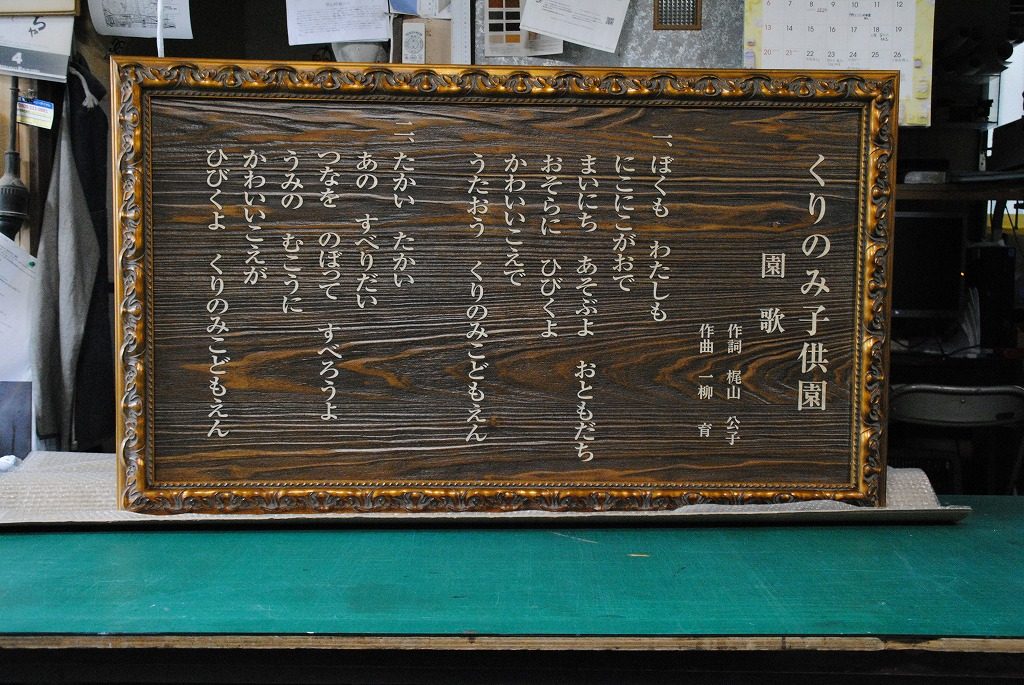 くりのみ子供園
園歌
作詞 梶山 公子
作曲 一柳 育
一、ぼくも わたしも
にこにこがおで
まいにち あそぶよ おともだち
おそらに ひびくよ
かわいいこえで
うたおう くりのみこどもえん
二、たかい たかい
あの すべりだい
つなを のぼって すべろうよ
うみの むこうに
かわいいこえが
ひびくよ くりのみこどもえん
4
6 7 8 9 10 11 12
13 14 15 16 17 18 19
20 21 22 23 24 25 26